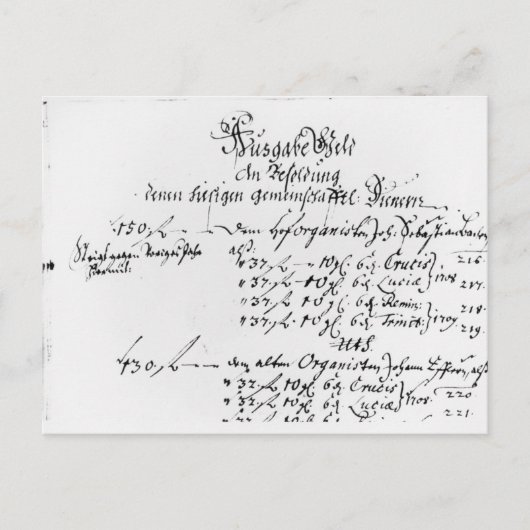 Ausgabe Geld
An Besoldung
denen hiesigen gemeinschafftl: Dienern
150. fl — dem Hoforganisten Joh: Sebastian Bachen
alß:
Steigt gegen voriges Jahr
" 37. fl — 10 gl. 6 d. Crucis } 216.
" 37. fl — 10 gl. 6 d. Luciæ } 1708 217.
" 37. fl — 10 gl. 6 d. Remin: } 218.
" 37. fl — 10 gl. 6 d. Trinit: } 1709. 219.
130. fl — dem alten Organisten Johann Efflern, alß
" 32. fl 10 gl. 6 d. Crucis } 220
" 32. fl 10 gl. 6 d. Luciæ } 1708. 221.